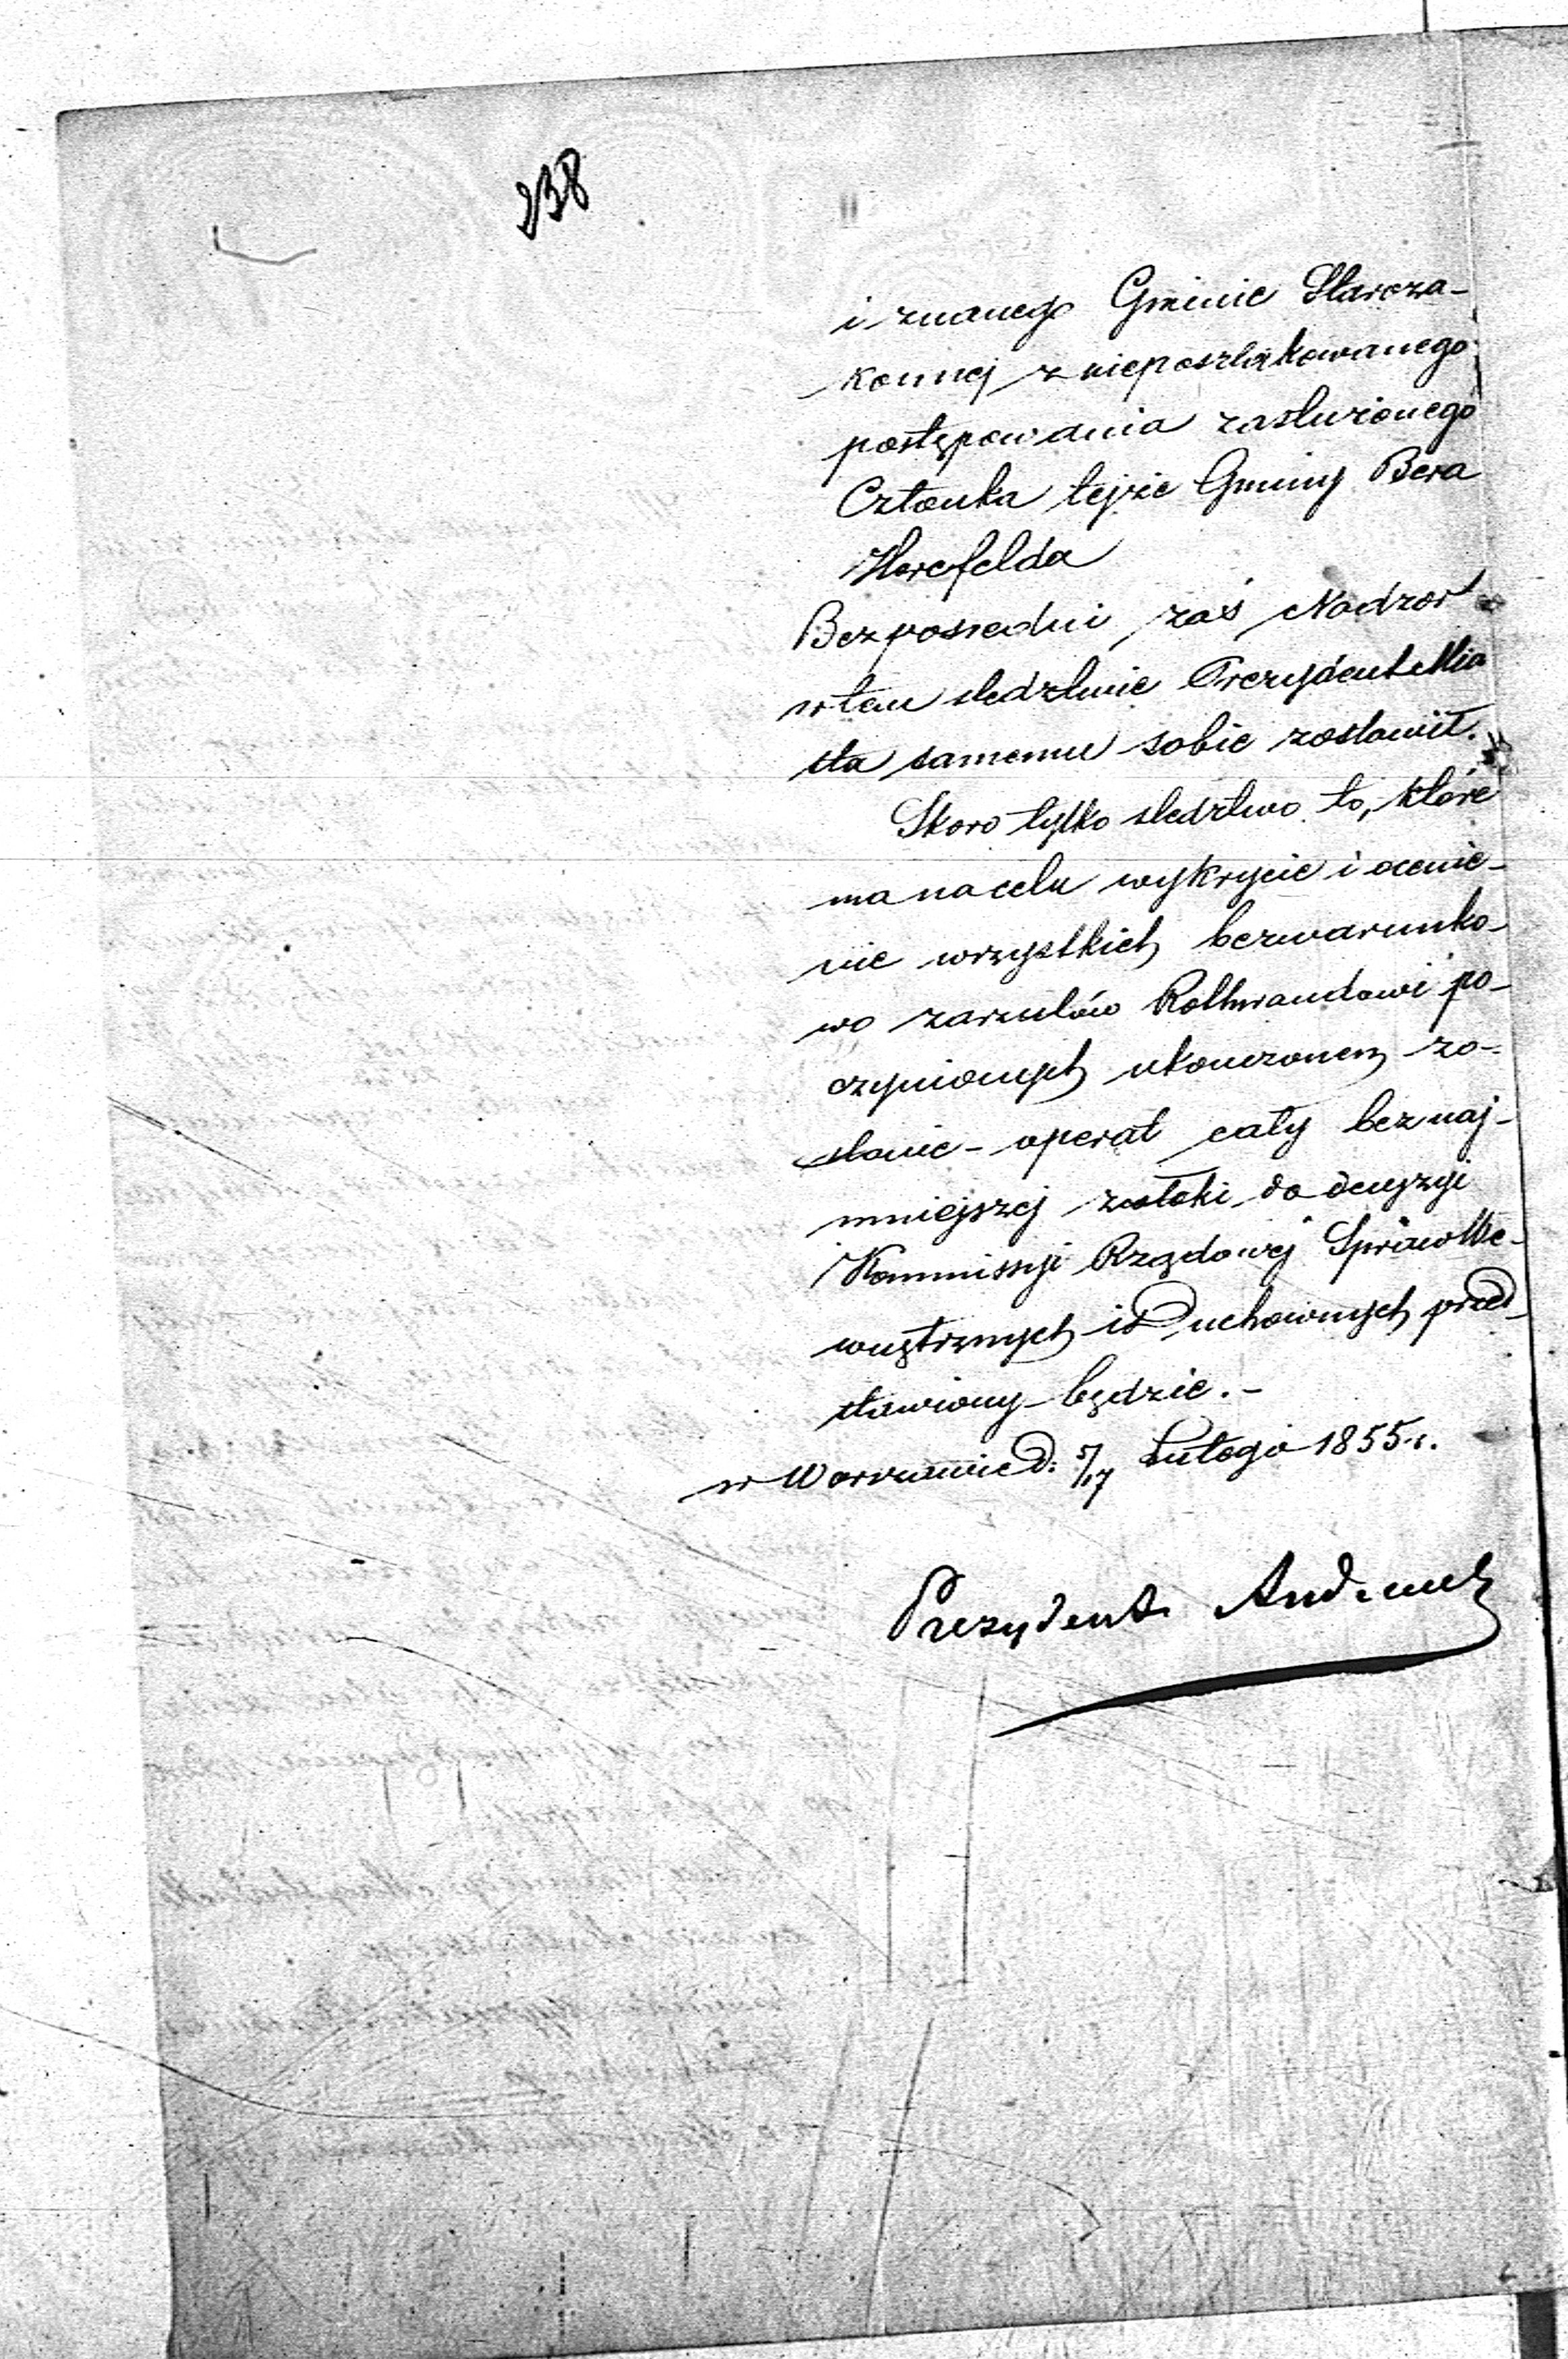 238
i znanego Gminie Staroza-
konnej z nieposzlakowanego
postępowania zasłużonego
Członka tejże Gminy Bera
Horefelda
Bezpośredni zaś Nadzór
w tem śledztwie Prezydent Mia
sta samemu sobie zostawił.
Skoro tylko śledztwo to, które
ma na celu wykrycie i ocenie-
nie wszystkich bezwarunko-
wo zarzutów Rothwandowi po-
czynionych ukończonem zo-
stanie - operat cały bez naj-
mniejszej zwłoki do decyzyi
Kommissyi Rządowej Spraw We-
wnętrznych i Duchownych przed
stawiony będzie. -
w Warszawie d. 5/17 Lutego 1855 r.
Prezydent